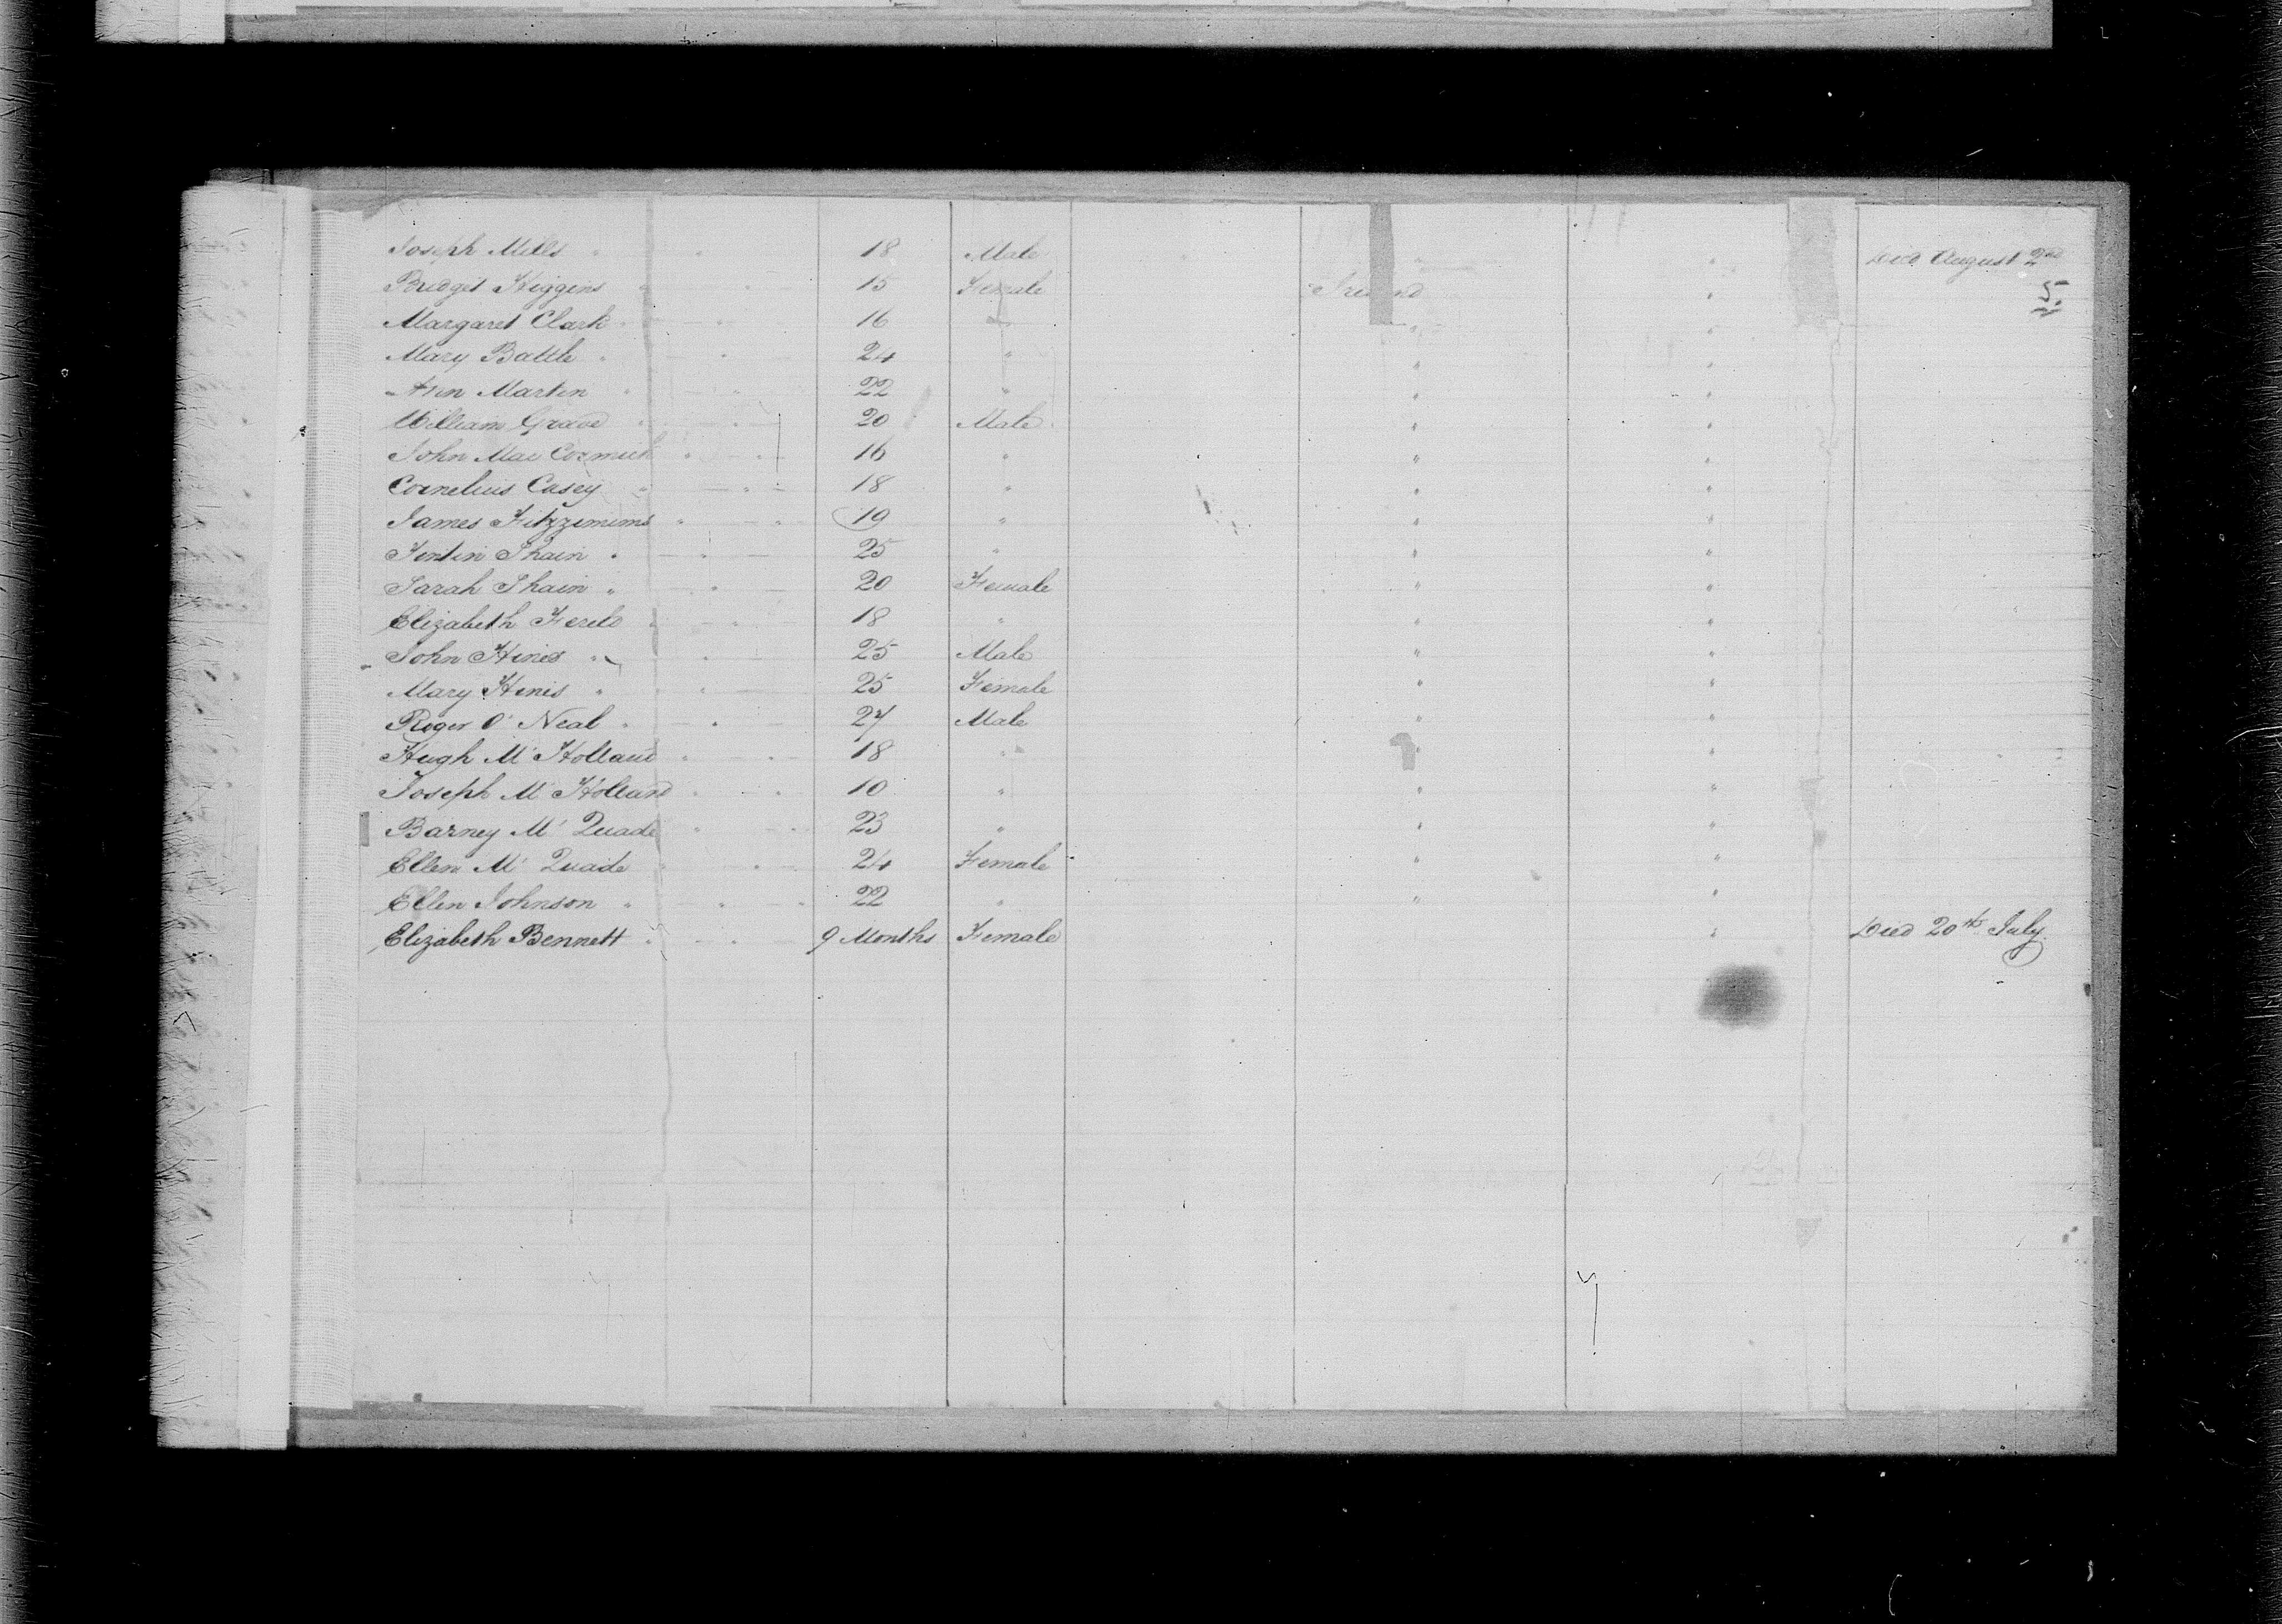 Joseph Mills " " 18 Male " " Died August 2nd
Bridget Higgins " " 15 Female Ireland " 5
Margaret Clark " " 16 " " "
Mary Battle " " 24 " " "
Ann Martin " " 22 " " "
William Grade " " 20 Male " "
John Mac Cormick " " 16 " " "
Cornelius Casey " " 18 " " "
James Fitzzimims " " 19 " " "
Fentin Shain " " 25 " " "
Sarah Shain " " 20 Female " "
Elizabeth " " 18 " " "
John Hines " " 25 Male " "
Mary Hinis " " 25 Female " "
Roger O' Neal " " 27 Male " "
Hugh M' Holland " " 18 " " "
Joseph M' Holland " " 10 " " "
Barney M' Quade " " 23 " " "
Ellen M' Quade " " 24 Female " "
Ellen Johnson " " 22 " " "
Elizabeth Bennett " " 9 Months Female " Died 20th July